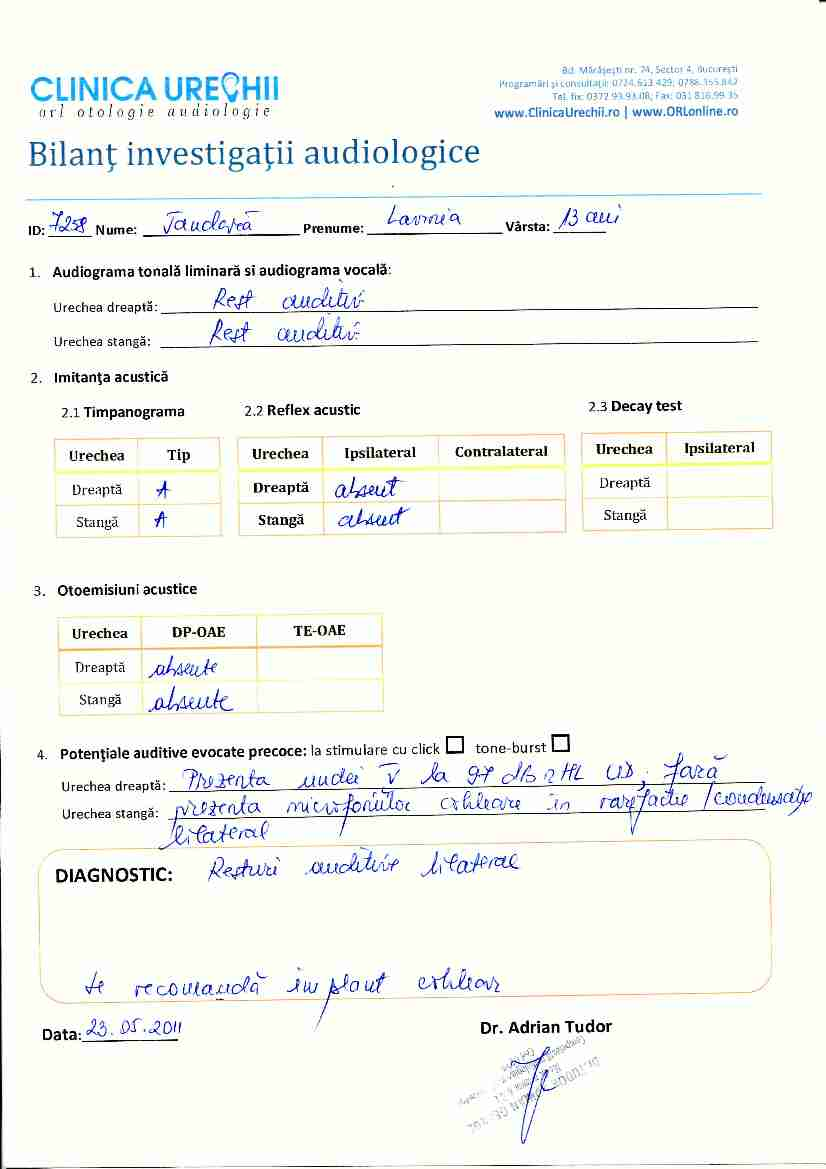 CLINICA URECHII
orl otologie audiologie
Bd. Mărășești nr. 74, Sector 4, București
Programări și consultații: 0724.613.429; 0786.355.842
Tel. fix: 0372.93.93.08; Fax: 031.816.99.35
www.ClinicaUrechii.ro | www.ORLonline.ro
Bilanţ investigaţii audiologice
ID: 7258 Nume: Prenume: Vârsta: 13 ani
1. Audiograma tonală liminară si audiograma vocală:
Urechea dreaptă: Rest auditiv
Urechea stangă: Rest auditiv
2. Imitanţa acustică
2.1 Timpanograma 2.2 Reflex acustic 2.3 Decay test
Urechea Tip Urechea Ipsilateral Contralateral Urechea Ipsilateral
Dreaptă A Dreaptă absent Dreaptă
Stangă A Stangă absent Stangă
3. Otoemisiuni acustice
Urechea DP-OAE TE-OAE
Dreaptă absente
Stangă absente
4. Potenţiale auditive evocate precoce: la stimulare cu click tone-burst
Urechea dreaptă: Prezenta undei V la 97 dB nHL UD, fară
Urechea stangă: prezenta microfoniilor cohleare in rarefactie/condensatie
bilateral
DIAGNOSTIC: Resturi auditive bilateral
Se recomandă implant cohlear
Data: 23.05.2011
Dr. Adrian Tudor